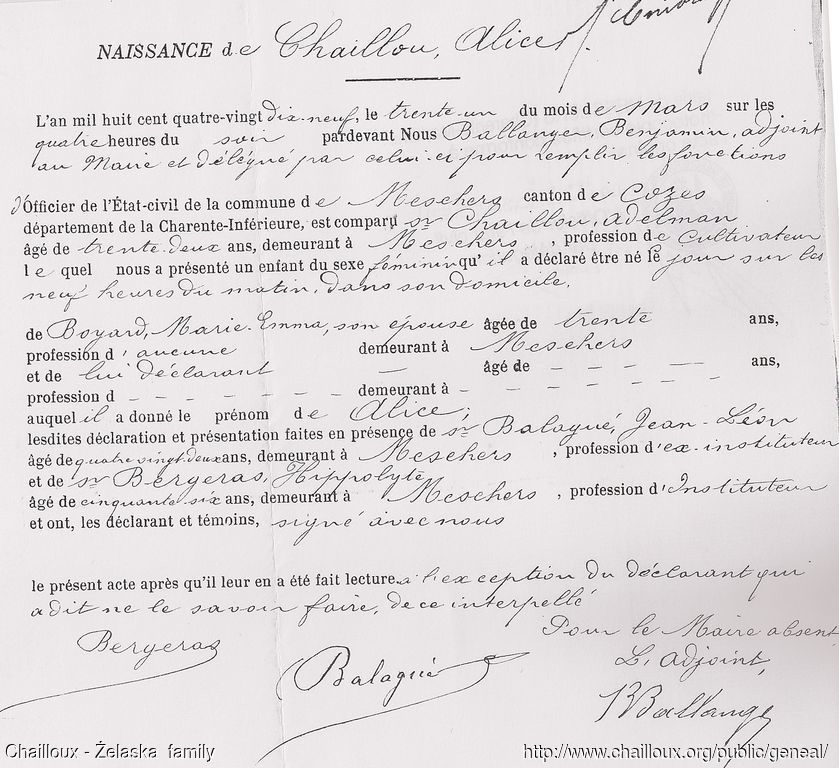 NAISSANCE de Chaillou, Alice
L'an mil huit cent quatre-vingt dix-neuf, le trente-un du mois de Mars sur les
quatre heures du soir pardevant Nous Ballanger, Benjamin, adjoint
au Maire et délégué par celui-ci pour remplir les fonctions
d'Officier de l'État-civil de la commune de Meschers canton de Cozes
département de la Charente-Inférieure, est comparu sr Chaillou, Adelman
âgé de trente-deux ans, demeurant à Meschers, profession de cultivateur
le quel nous a présenté un enfant du sexe féminin qu'il a déclaré être né le jour sur les
neuf heures du matin, dans son domicile,
de Boyard, Marie-Emma, son épouse âgée de trente ans,
profession d'aucune demeurant à Meschers
et de lui déclarant — âgé de — — — — ans,
profession d — — — — — — demeurant à — — — — — —
auquel il a donné le prénom de Alice;
lesdites déclaration et présentation faites en présence de sr Balagué, Jean-Léon
âgé de quatre vingt-deux ans, demeurant à Meschers, profession d'ex-instituteur
et de sr Bergeras, Hippolyte
âgé de cinquante six ans, demeurant à Meschers, profession d'Instituteur
et ont, les déclarant et témoins, signé avec nous
le présent acte après qu'il leur en a été fait lecture à l'exception du déclarant qui
a dit ne le savoir faire, de ce interpellé
Pour le Maire absent,
L'adjoint,
Bergeras
Balagué
BBallanger
Chailloux - Želaska family
http://www.chailloux.org/public/geneal/